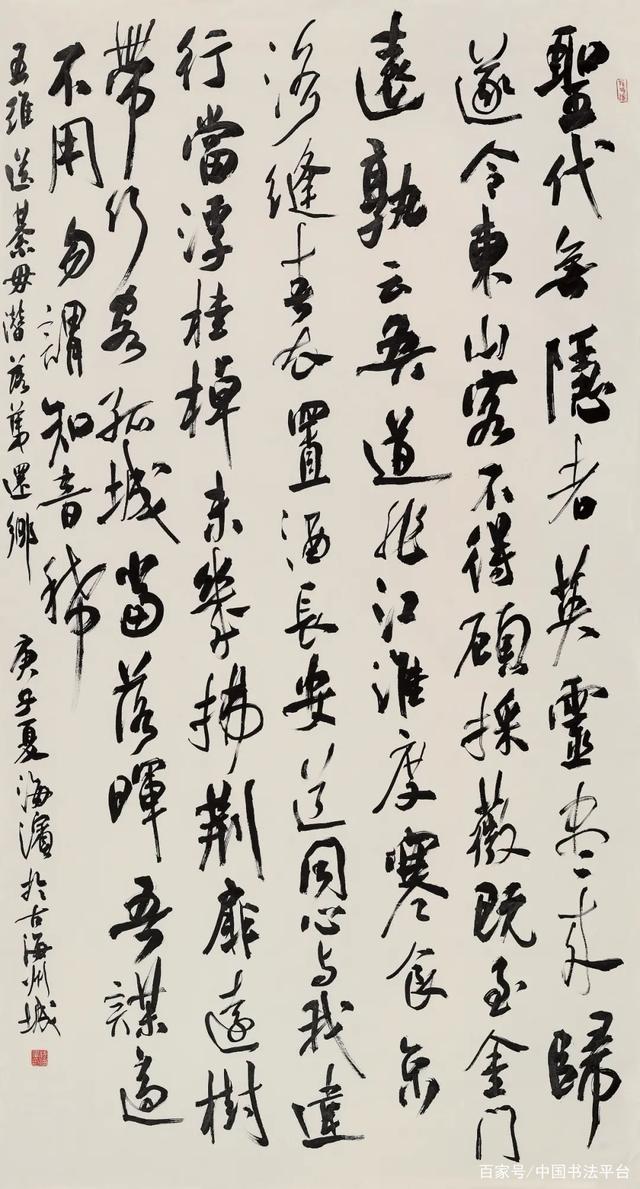 聖代無隱者英靈盡來歸
遂令東山客不得顧採薇既至金門
遠孰云吾道非江淮度寒食京
洛縫春衣置酒長安道同心与我違
行當浮桂棹未幾拂荆扉遠樹
帶行客孤城當落暉吾謀適
不用勿謂知音稀
王維送綦毋潛落第還鄉 庚子夏海濱於古海州城
百家号/中国书法平台